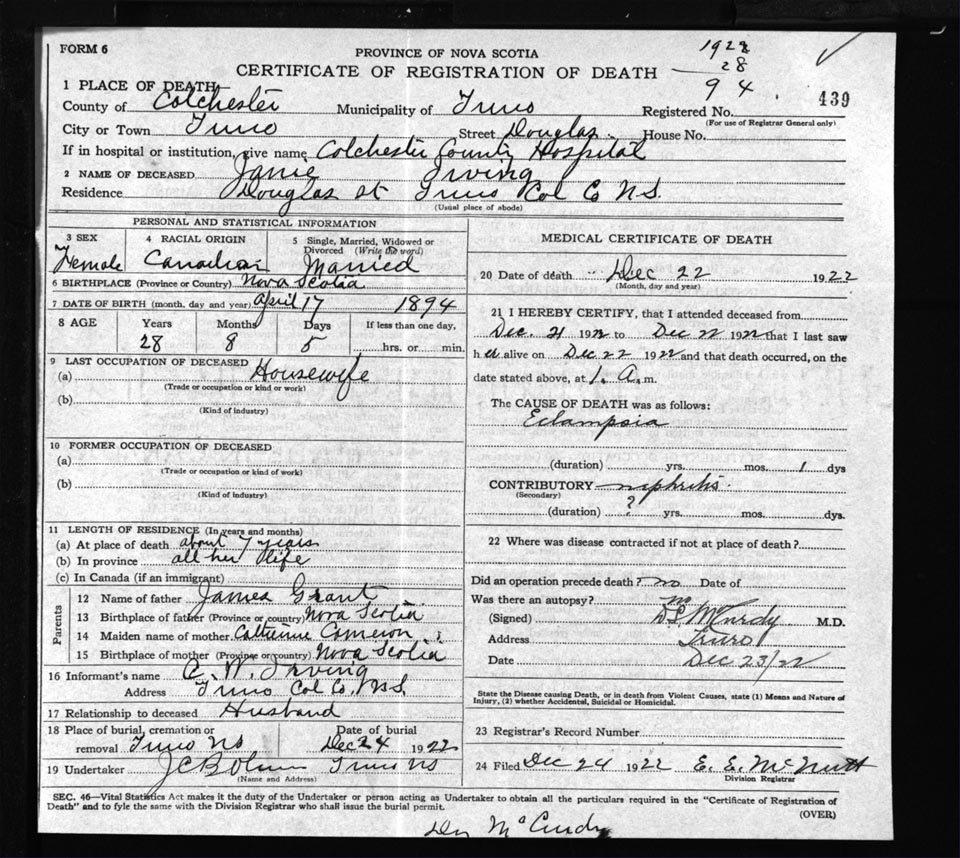 FORM 6
PROVINCE OF NOVA SCOTIA
CERTIFICATE OF REGISTRATION OF DEATH
1922
28
94
439
1 PLACE OF DEATH
County of Colchester Municipality of Truro Registered No.
(For use of Registrar General only)
City or Town Truro Street Douglas House No.
If in hospital or institution, give name Colchester County Hospital
2 NAME OF DECEASED Janie Irving
Residence Douglas St Truro Col Co N.S.
(Usual place of abode)
PERSONAL AND STATISTICAL INFORMATION
3 SEX 4 RACIAL ORIGIN 5 Single, Married, Widowed or Divorced (Write the word)
Female Canadian Married
6 BIRTHPLACE (Province or Country) Nova Scotia
7 DATE OF BIRTH (month, day and year) April 17 1894
8 AGE Years Months Days If less than one day,
28 8 5 hrs. or min.
9 LAST OCCUPATION OF DECEASED
(a) Housewife
(Trade or occupation or kind or work)
(b)
(Kind of industry)
10 FORMER OCCUPATION OF DECEASED
(a)
(Trade or occupation or kind of work)
(b)
(Kind of industry)
11 LENGTH OF RESIDENCE (In years and months)
(a) At place of death about 7 years
(b) In province all her life
(c) In Canada (if an immigrant)
Parents
12 Name of father James Grant
13 Birthplace of father (Province or country) Nova Scotia
14 Maiden name of mother Catherine Cameron
15 Birthplace of mother (Province or country) Nova Scotia
16 Informant's name C. W. Irving
Address Truro Col Co. N.S.
17 Relationship to deceased Husband
18 Place of burial, cremation or removal Truro NS Date of burial Dec 24 1922
19 Undertaker Truro NS
(Name and Address)
MEDICAL CERTIFICATE OF DEATH
20 Date of death Dec 22 1922
(Month, day and year)
21 I HEREBY CERTIFY, that I attended deceased from
Dec. 21 1922 to Dec 22 1922 that I last saw
her alive on Dec 22 1922 and that death occurred, on the
date stated above, at 1. A. m.
The CAUSE OF DEATH was as follows:
Eclampsia
(duration) yrs. mos. 1 dys
CONTRIBUTORY nephritis.
(Secondary)
(duration) ? yrs. mos. dys.
22 Where was disease contracted if not at place of death?
Did an operation precede death? no Date of
Was there an autopsy? no
(Signed) McCurdy M.D.
Address Truro
Date Dec 23/22
State the Disease causing Death, or in death from Violent Causes, state (1) Means and Nature of
Injury, (2) whether Accidental, Suicidal or Homicidal.
23 Registrar's Record Number
24 Filed Dec 24 1922 E. E. McNutt
Division Registrar
SEC. 46—Vital Statistics Act makes it the duty of the Undertaker or person acting as Undertaker to obtain all the particulars required in the "Certificate of Registration of
Death" and to fyle the same with the Division Registrar who shall issue the burial permit.
(OVER)
McCurdy